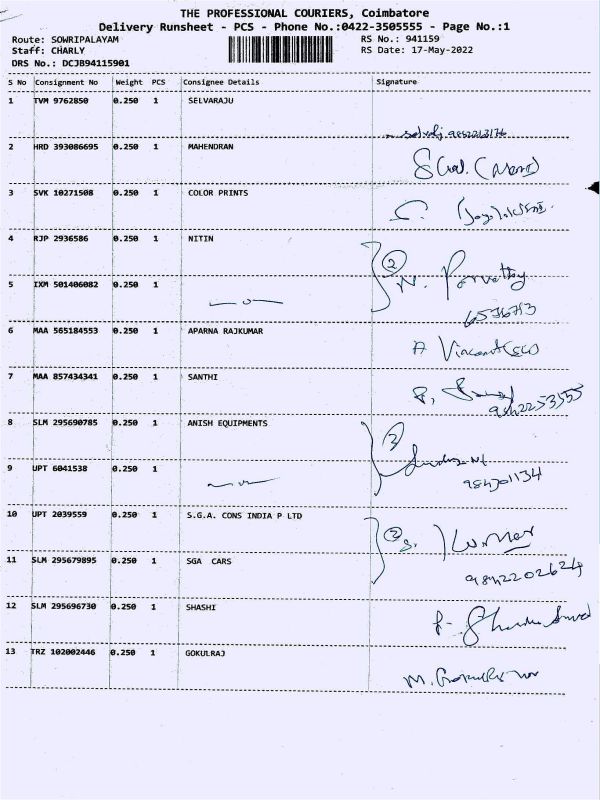 THE PROFESSIONAL COURIERS, Coimbatore
Delivery Runsheet - PCS - Phone No.:0422-3505555 - Page No.:1
Route: SOWRIPALAYAM RS No.: 941159
Staff: CHARLY RS Date: 17-May-2022
DRS No.: DCJB94115901
S No Consignment No Weight PCS Consignee Details Signature
1 TVM 9762850 0.250 1 SELVARAJU
2 HRD 393086695 0.250 1 MAHENDRAN
3 SVK 10271508 0.250 1 COLOR PRINTS
4 RJP 2936586 0.250 1 NITIN
2
5 IXM 501406082 0.250 1
N. Parvathy
6 MAA 565184553 0.250 1 APARNA RAJKUMAR
A
7 MAA 857434341 0.250 1 SANTHI
8 SLM 295690785 0.250 1 ANISH EQUIPMENTS
2
9 UPT 6041538 0.250 1
10 UPT 2039559 0.250 1 S.G.A. CONS INDIA P LTD
2 S. Kumar
11 SLM 295679895 0.250 1 SGA CARS
9842202624
12 SLM 295696730 0.250 1 SHASHI
13 TRZ 102002446 0.250 1 GOKULRAJ
M.